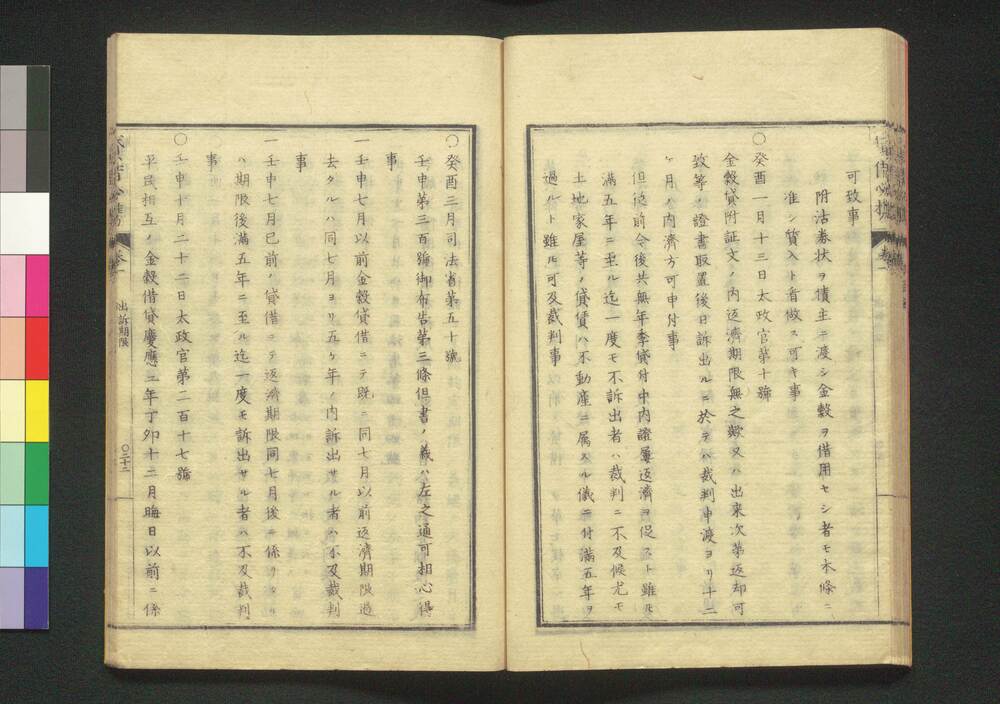 可致事
附沽券状ヲ債主ニ渡シ金穀ヲ借用セシ者モ本條ニ
准シ質入ト看做ス可キ事
〇癸酉一月十三日太政官第十號
金穀貸附証文ノ内返濟期限無之歟又ハ出来次第返却可
致等ノ證書取置後日訴出ルニ於テハ裁判申渡ヨリ十二
ケ月ノ内濟方可申付事
但從前今後共無年季貸付中内證屢返濟ヲ促スト雖𪜈
満五年ニ至ル迄一度モ不訴出者ハ裁判ニ不及候尤モ
土地家屋等ノ貸賃ハ不動産ニ属スル儀ニ付満五年ヲ
過ルト雖𪜈可及裁判事
〇癸酉三月司法省第五十號
壬申第三百號御布告第三條但書ノ義ハ左之通可相心得
事
一壬申七月以前金穀貸借ニテ既ニ同七月以前返濟期限過
去タルハ同七月ヨリ五ケ年ノ内訴出サル者ハ不及裁判
事
一壬申七月已前ノ貸借ニテ返濟期限同七月後ニ係リタル
ハ期限後満五年ニ至ル迄一度モ訴出サル者ハ不及裁判
事
〇壬申十月二十二日太政官第二百十七號
平民相互ノ金穀借貸慶應三年丁卯十二月晦日以前ニ係
卷一
出訴期限
〇三十二